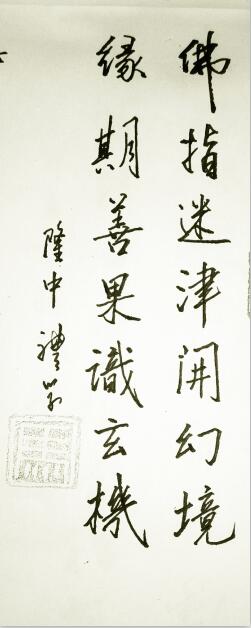 佛指迷津開幻境
緣期善果識玄機
隆中禮